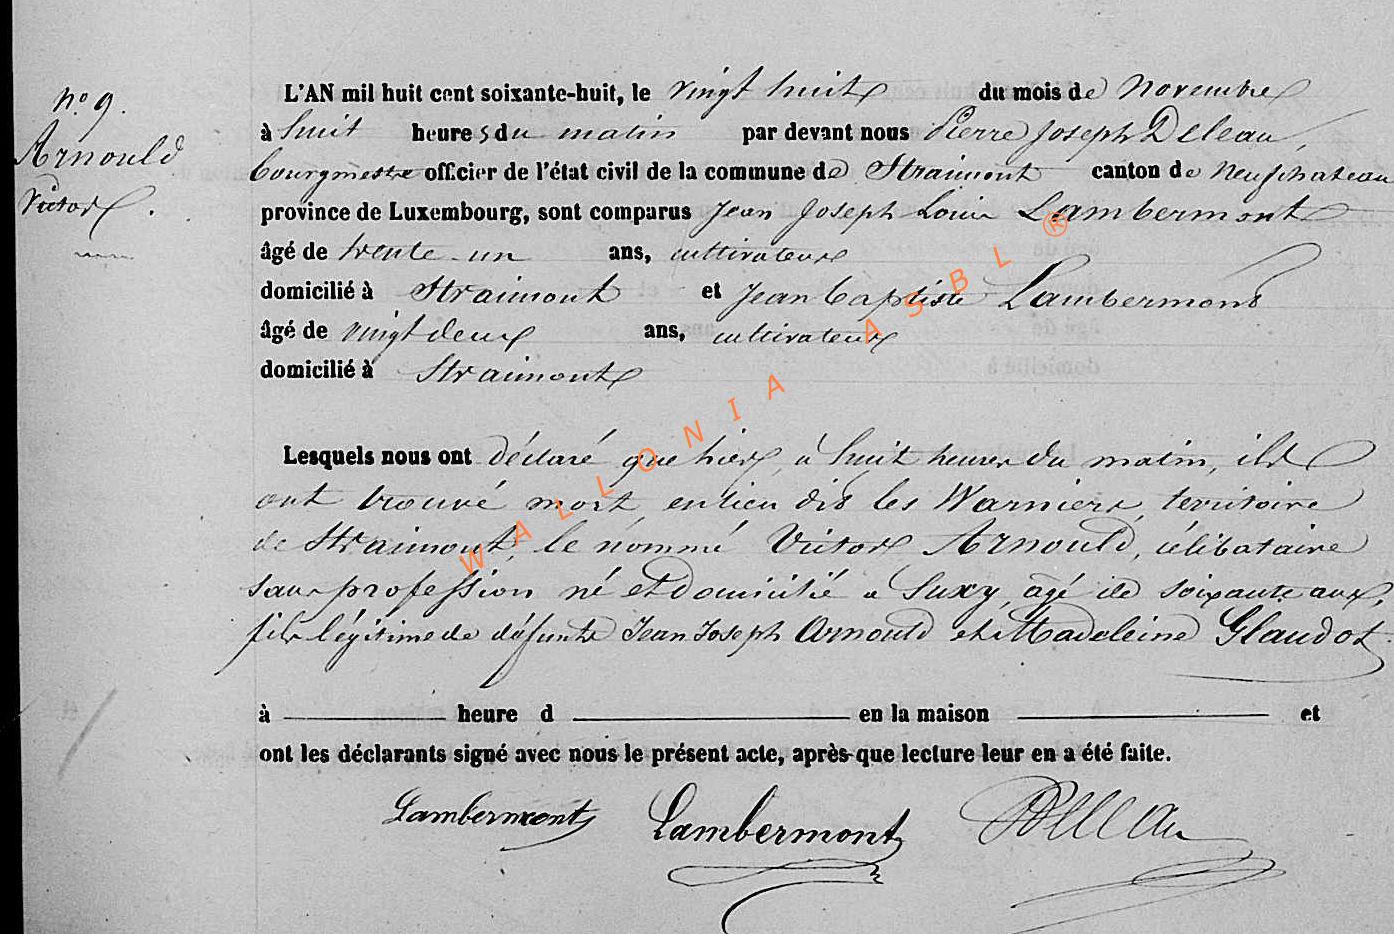 nº 9.
Arnould
Victor.
L'AN mil huit cent soixante-huit, le vingt huit du mois de Novembre
à huit heures du matin par devant nous Pierre Joseph Deleau,
bourgmestre officier de l'état civil de la commune de Straimont canton de Neufchateau
province de Luxembourg, sont comparus Jean Joseph Louis Lambermont
âgé de trente un ans, cultivateur
domicilié à Straimont et Jean Baptiste Lambermont
âgé de vingt deux ans, cultivateur
domicilié à Straimont
Lesquels nous ont déclaré que hier, à huit heures du matin, ils
ont trouvé mort en lieu dit les Warniers, territoire
de Straimont, le nommé Victor Arnould, célibataire
sans profession né et domicilié a Suxy, agé de soixante ans,
fils légitime de défunts Jean Joseph Arnould et Madeleine Glaudot.
à heure d en la maison et
ont les déclarants signé avec nous le présent acte, après que lecture leur en a été faite.
Lambermont Lambermont Deleau
WALLONIA ASBL ®